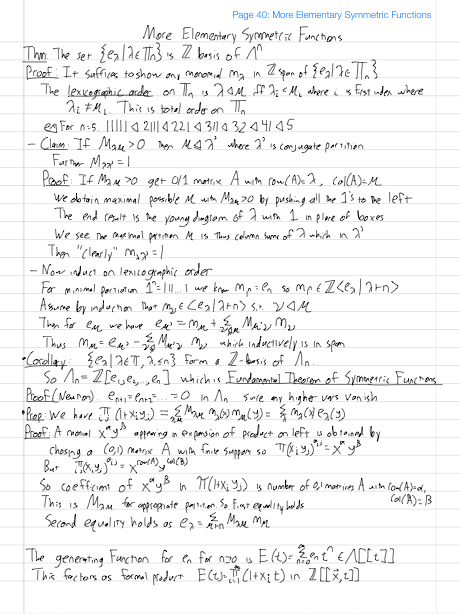 Page 40: More Elementary Symmetric Functions
More Elementary Symmetric Functions
Thm: The set {e_λ | λ∈Π_n} is ℤ basis of Λ^n
Proof: It suffices to show any monomial m_λ in ℤ span of {e_λ | λ∈Π_n}
The lexicographic order on Π_n is λ◁M iff λ_i < M_i where i is first index where
λ_i ≠ M_i. This is total order on Π_n
eg For n=5. 11111 ◁ 2111 ◁ 221 ◁ 311 ◁ 32 ◁ 41 ◁ 5
- Claim: If M_λμ > 0 then M ⊴ λ' where λ' is conjugate partition
Further M_λλ' = 1
Proof: If M_λμ > 0 get 0/1 matrix A with row(A)=λ, col(A)=M
We obtain maximal possible M with M_λμ > 0 by pushing all the 1's to the left
The end result is the young diagram of λ with 1 in place of boxes
We see the maximal partition M is thus column sums of λ which is λ'
Then "clearly" m_λλ' = 1
- Now induct on lexicographic order
For minimal partition 1^n = 11...1 we know m_μ = e_n so m_μ ∈ ℤ<e_λ | λ⊢n>
Assume by induction that m_ν ∈ <e_λ | λ⊢n> s.t. ν◁M
Then for e_μ' we have e_μ' = m_μ + Σ_ν◁μ M_μ'ν m_ν
Thus m_μ = e_μ' - Σ_ν◁μ M_μ'ν m_ν which inductively is in span
• Corollary: {e_λ | λ∈Π, λ_1≤n} form a ℤ-basis of Λ_n
So Λ_n = ℤ[e_1, e_2, ..., e_n] which is Fundamental Theorem of Symmetric Functions
Proof (Newton): e_n+1 = e_n+2 = ... = 0 in Λ_n since any higher vars vanish
• Prop: We have Π_i,j (1+x_i y_j) = Σ_λ,μ M_λμ m_λ(x) m_μ(y) = Σ_λ m_λ(x) e_λ(y)
Proof: A monial x^α y^β appearing in expansion of product on left is obtained by
chosing a (0,1) matrix A with finite support so Π(x_i y_j)^a_ij = x^α y^β
But Π_i,j (x_i y_j)^a_ij = x^row(A) y^col(A)
So coefficient of x^α y^β in Π(1+x_i y_j) is number of 0,1 matrices A with row(A)=α,
col(A)=β
This is M_λμ for appropriate partition. So first equality holds
Second equality holds as e_λ = Σ_μ⊢n M_λμ m_μ
The generating Function for e_n for n≥0 is E(t) = Σ_n=0^∞ e_n t^n ∈ Λ[[t]]
This factors as formal product E(t) = Π_i=1^∞ (1+x_i t) in ℤ[[x⃗,t]]